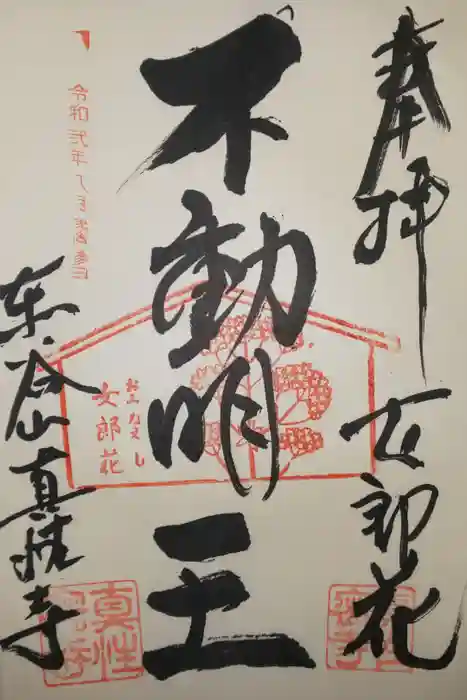 奉拝 女郎花
不動明王
令和弐年八月
おみなえし
女郎花
東谷山 真性寺
真性